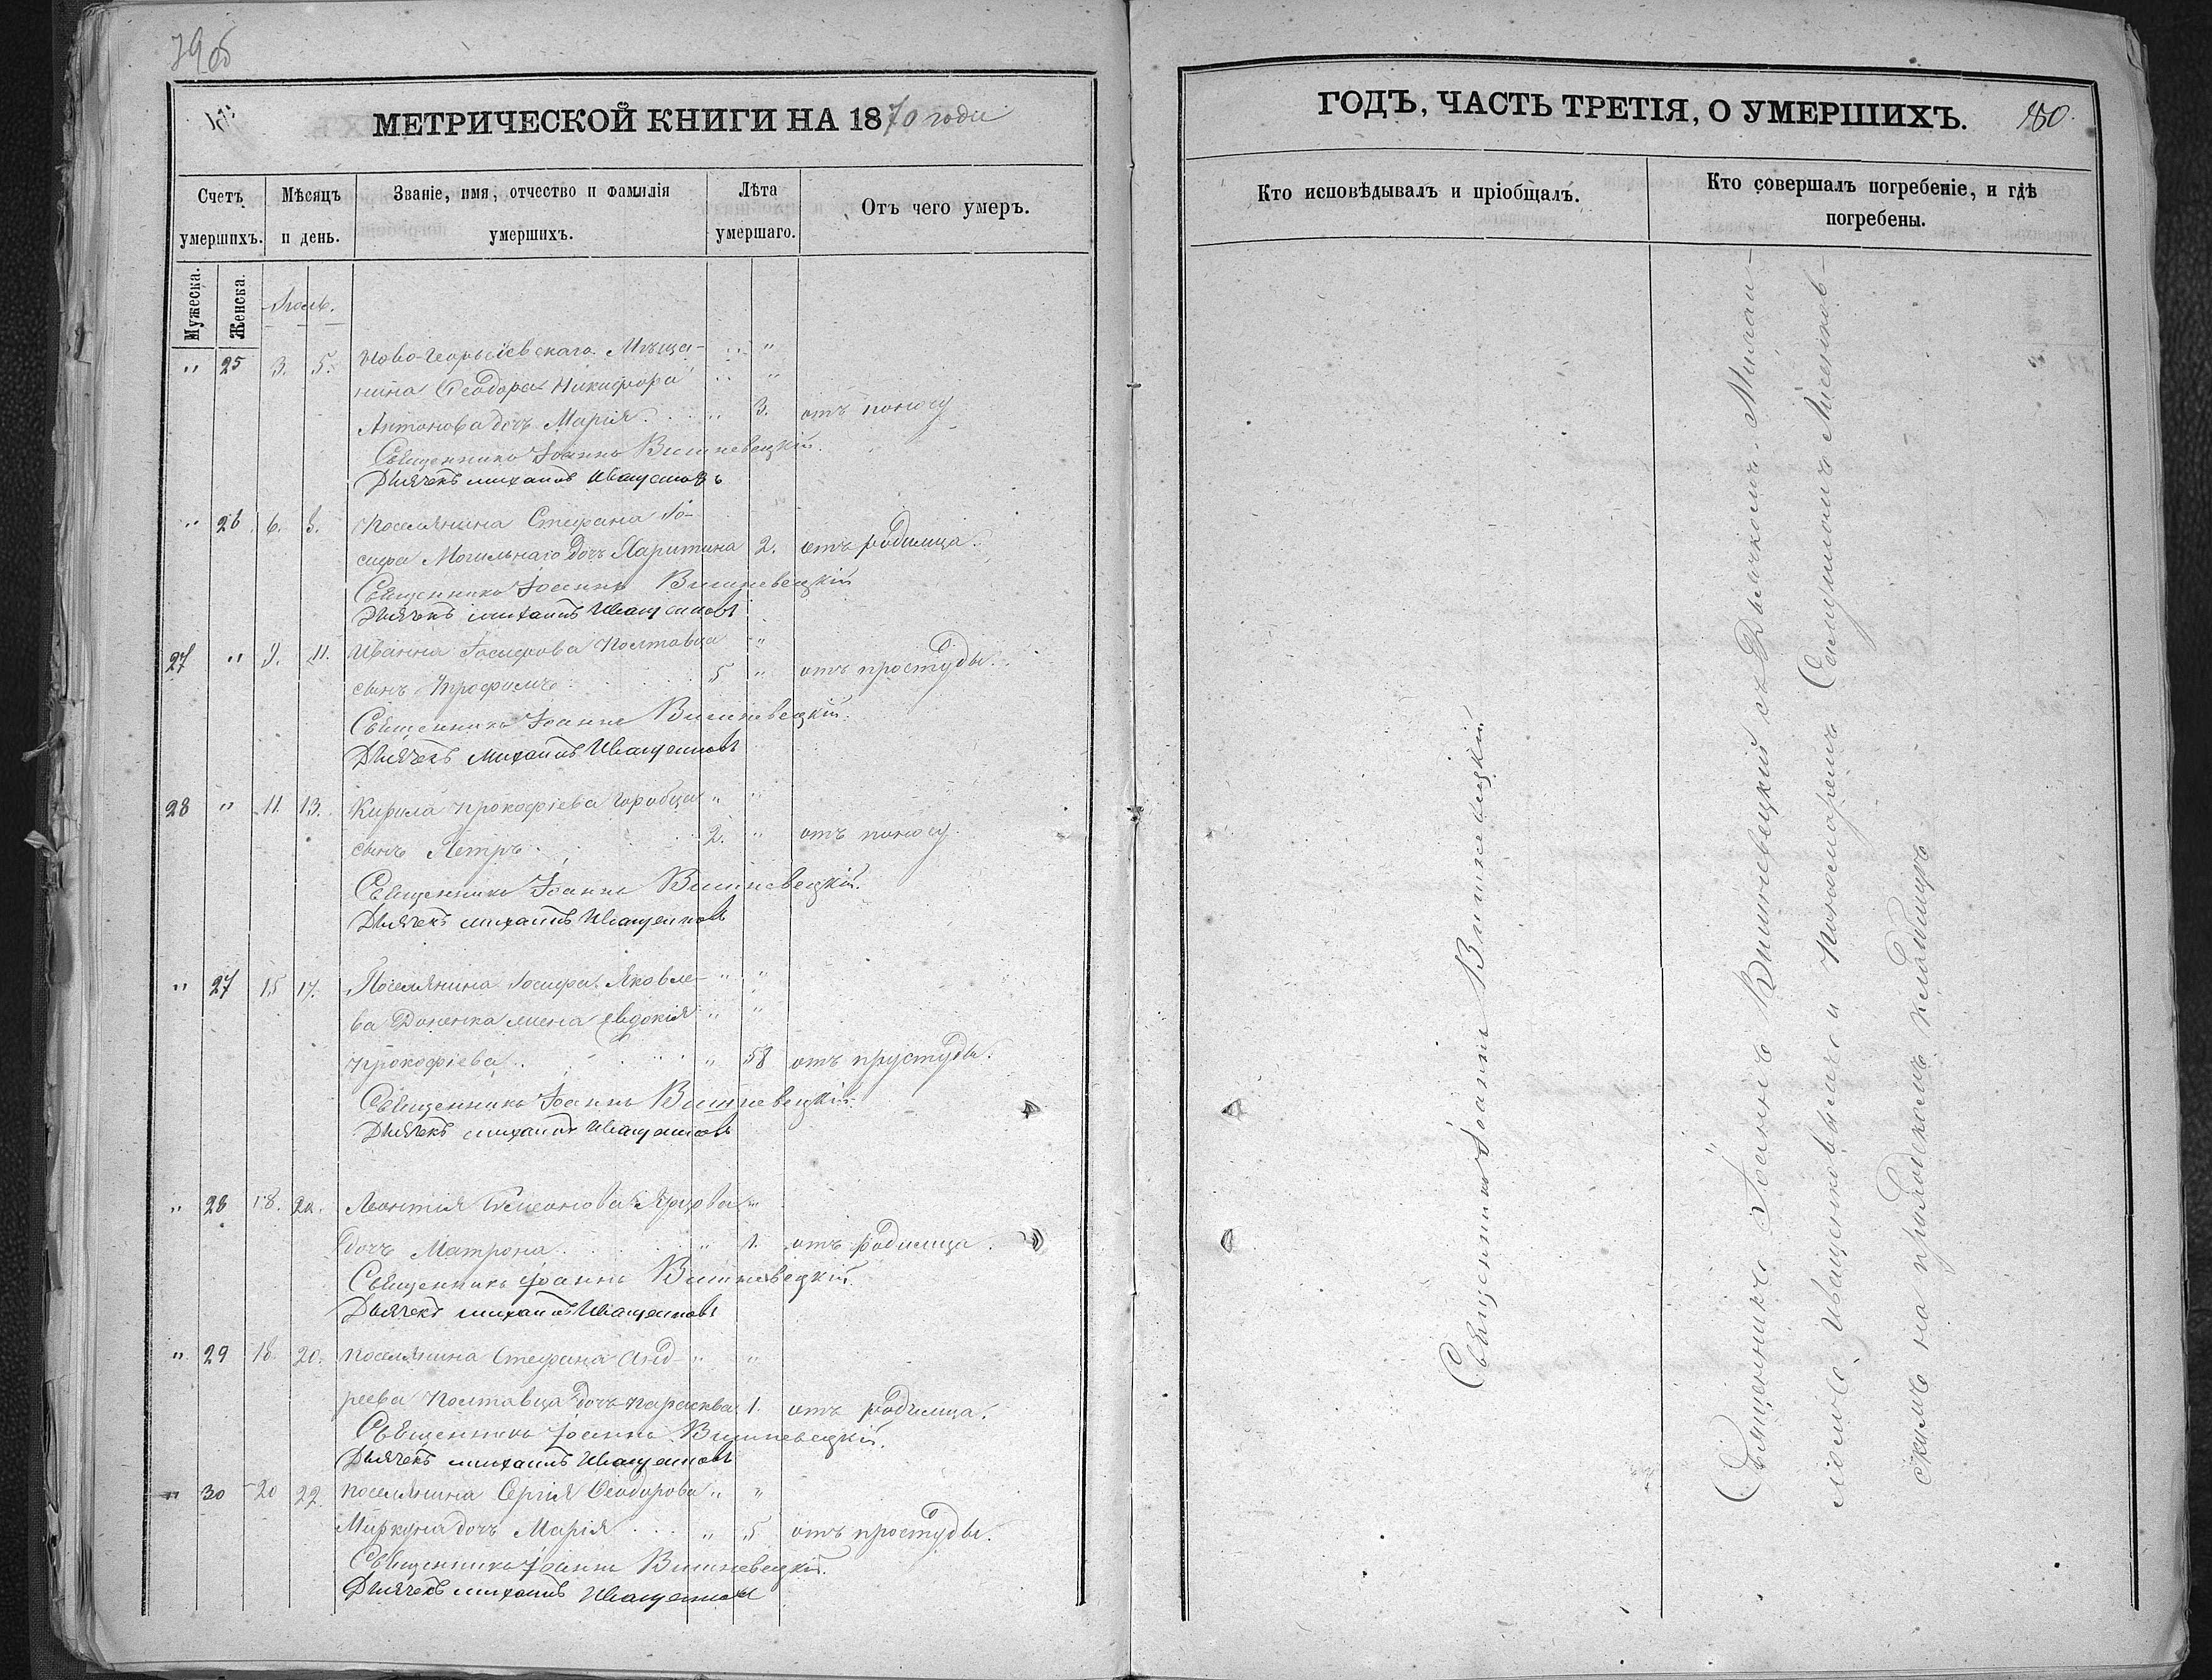 МЕТРИЧЕСКОЙ КНИГИ НА 1870 года
Счетъ умершихъ.
Мѣсяцъ и день.
Званіе, имя, отчество и фамилія умершихъ.
Лѣта умершаго.
Отъ чего умеръ.
Мужеска.
Женска
Іюль.
" 25 3. 5. Ново-Георгіевскаго Мѣща-
нина Ѳеодора Никифора
Антонова дочь Марія 3. отъ поносу
Священникъ Іоаннъ Вишневецкій
Дьячекъ Михаилъ Иващенковъ
" 26 6. 8. Поселянина Стефана Іо-
сифа Могильнаго дочь Харитина 2. отъ родимца.
Священникъ Іоаннъ Вишневецкій
Дьячекъ Михаилъ Иващенковъ
27 " 9. 11. Иванна Іосифова Полтавца
сынъ Трофимъ 5 " отъ простуды.
Священникъ Іоаннъ Вишневецкій.
Дьячекъ Михаилъ Иващенковъ
28 " 11. 13. Кирила Прокофіева Горобца " "
сынъ Петръ 2. " отъ поносу.
Священникъ Іоаннъ Вишневецкій.
Дьячекъ Михаилъ Иващенковъ
" 27 15 17. Поселянина Іосифа Яковле- " "
ва Доненка жена Евдокія " "
Прокофіева " 58 отъ прустуды.
Священникъ Іоаннъ Вишневецкій.
Дьячекъ Михаилъ Иващенковъ
" 28 18. 20. Леонтія Симеонова
дочь Матрона " 1. отъ родимца.
Священникъ Іоаннъ Вишневецкій.
Дьячекъ Михаилъ Иващенковъ
" 29 18. 20. Поселянина Стефана Анд- " "
реева Полтавца дочь Парасква 1. отъ родимца.
Священникъ Іоаннъ Вишневецкій.
Дьячекъ Михаилъ Иващенковъ
" 30 20 22. Поселянина Сергія Ѳеодорова " "
Миркуна дочь Марія " 5 отъ простуды.
Священникъ Іоаннъ Вишневецкій.
Дьячекъ Михаилъ Иващенковъ
ГОДЪ, ЧАСТЬ ТРЕТІЯ, О УМЕРШИХЪ. 180.
Кто исповѣдывалъ и пріобщалъ.
Кто совершалъ погребеніе, и гдѣ погребены.
Священникъ Іоаннъ Вишневецкій
Священникъ Іоаннъ Вишневецкій съ Дьячкомъ Михаи-
ломъ Иващенковымъ и Пономаремъ
скимъ на приходскомъ кладбищѣ